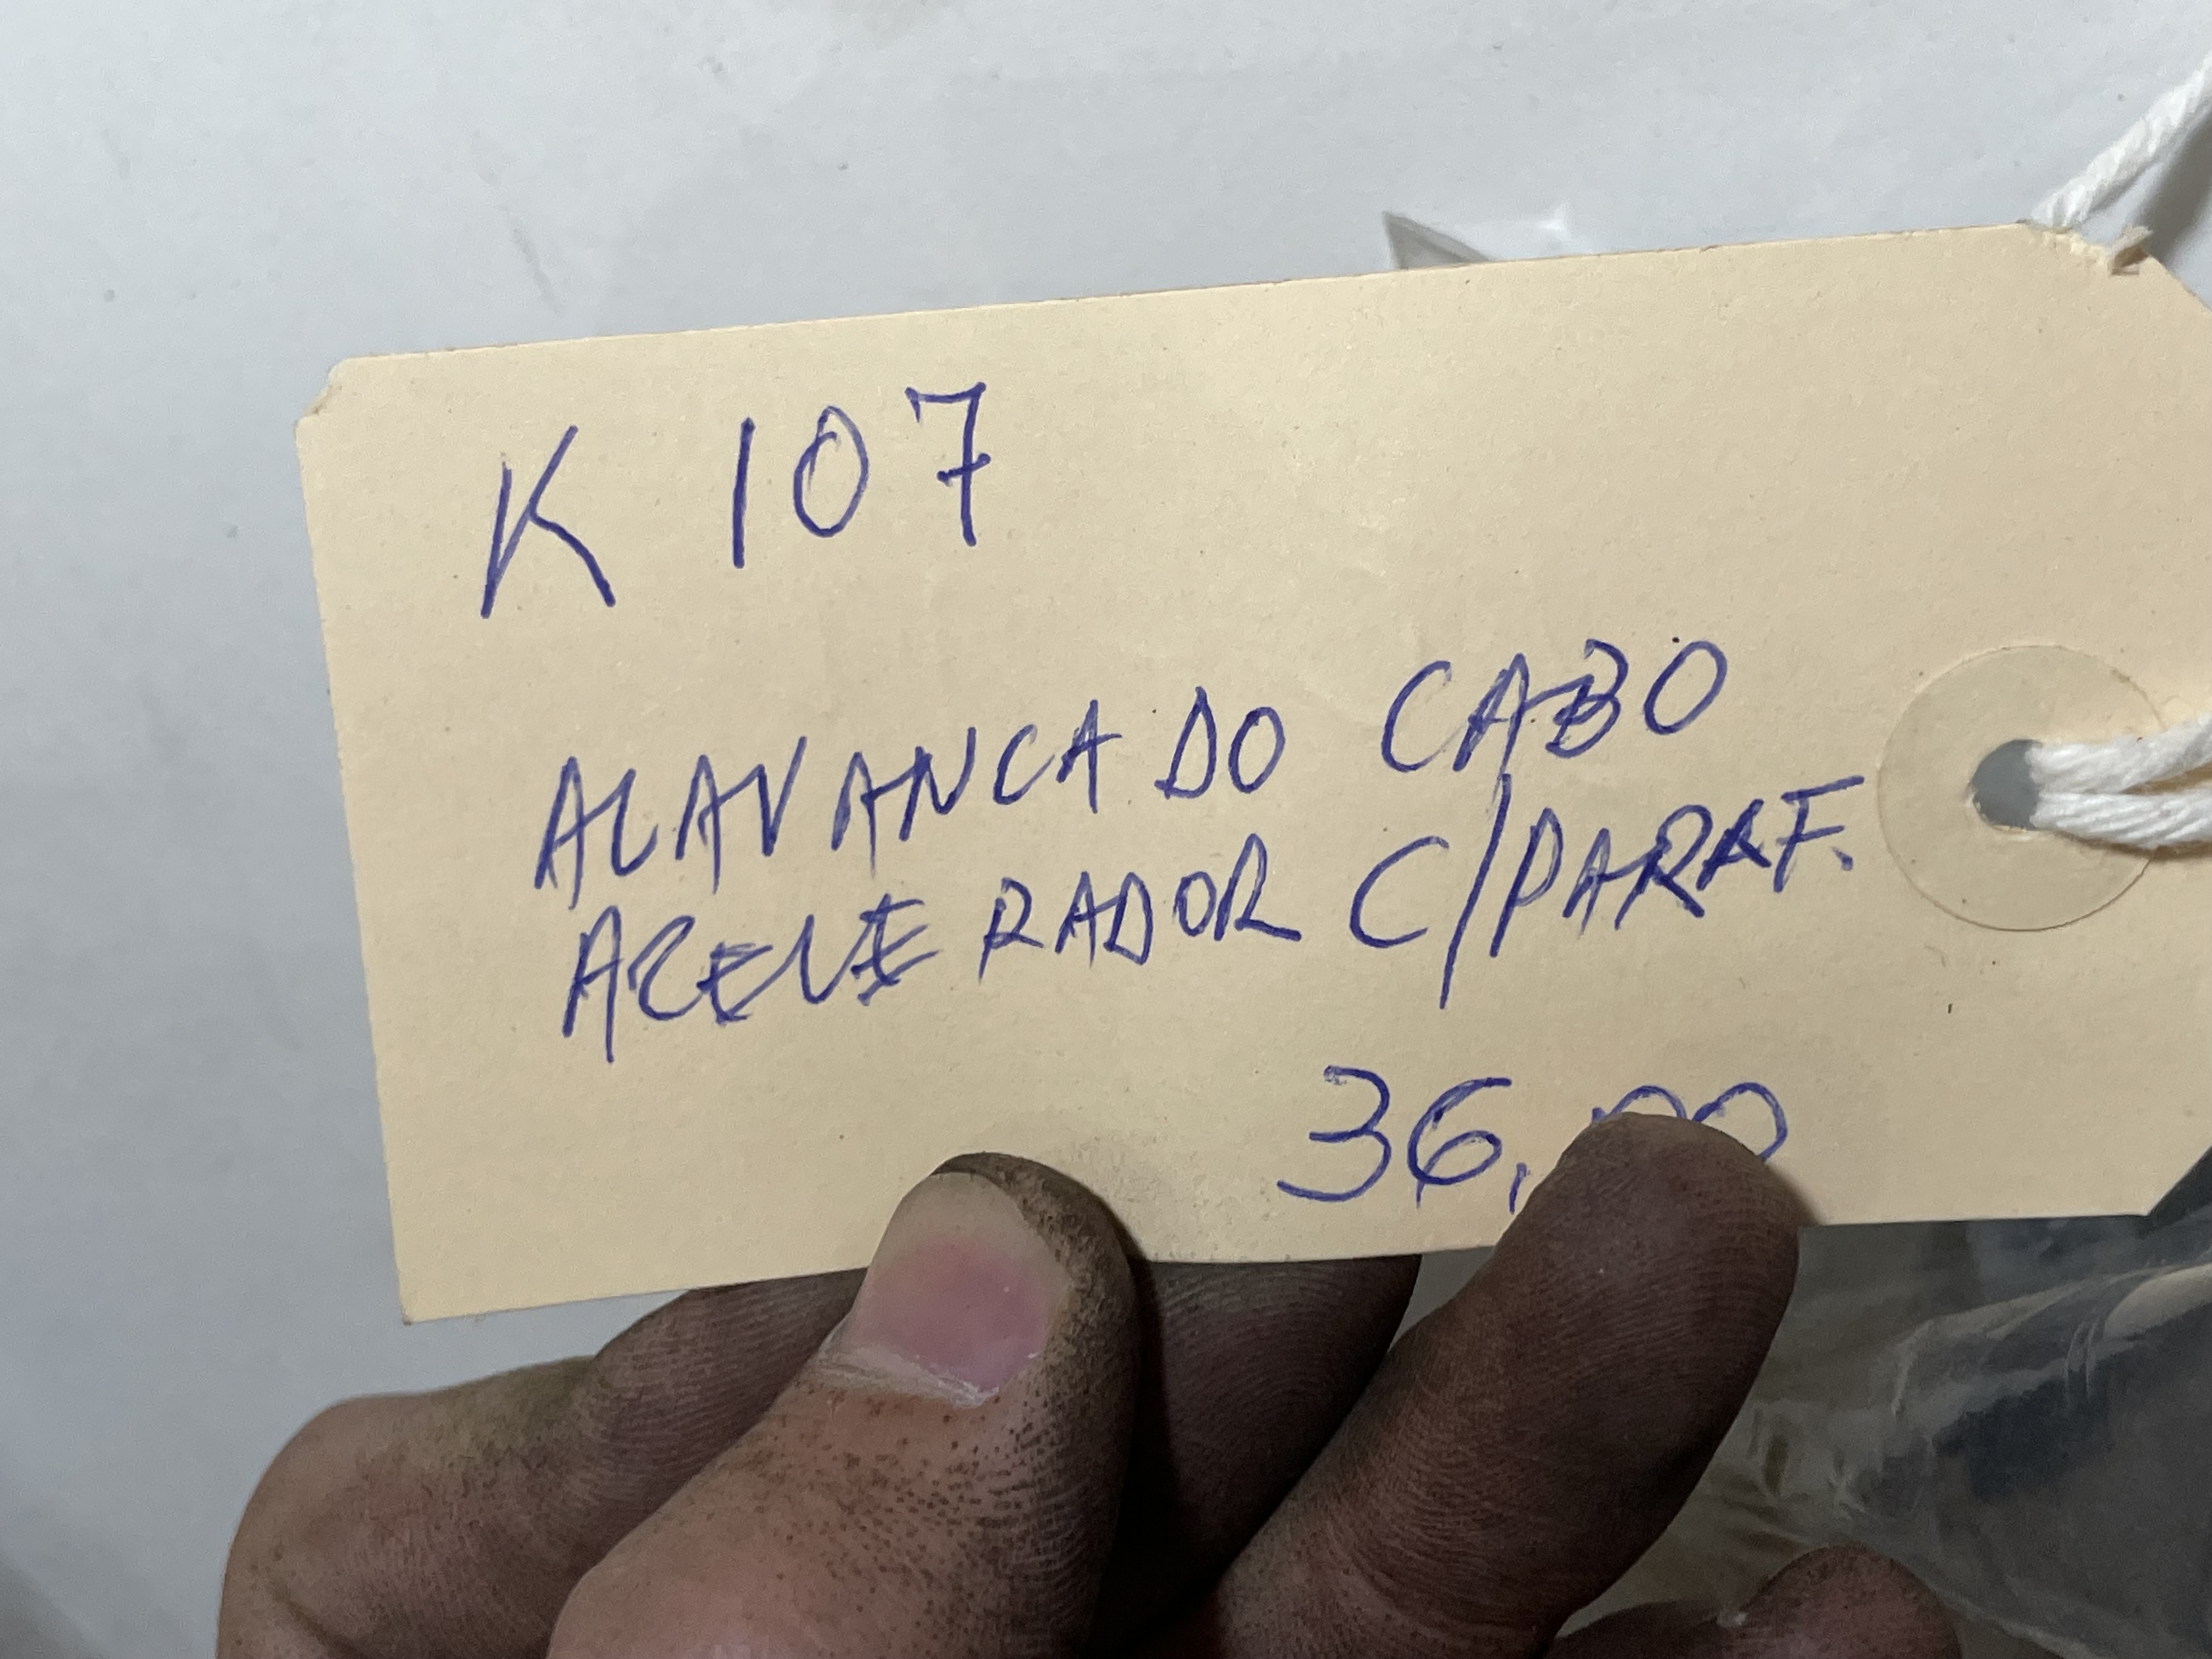 K 107
ALAVANCA DO CABO
ACELERADOR C/PARAF.
36,00